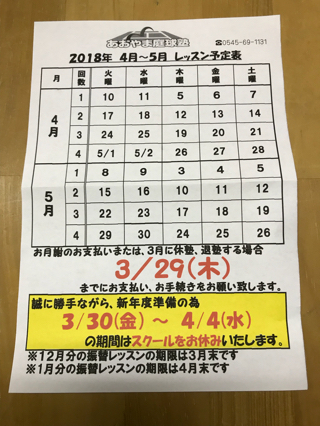 あおや手庭球塾
☎0545-69-1131
2018年 4月～5月 レッスン予定表
月 回数 火曜 水曜 木曜 金曜 土曜
4月
1 10 11 5 6 7
2 17 18 12 13 14
3 24 25 19 20 21
4 5/1 5/2 26 27 28
5月
1 8 9 3 4 5
2 15 16 10 11 12
3 22 23 17 18 19
4 29 30 24 25 26
お月謝のお支払いまたは、3月に休塾、退塾する場合
3/29(木)
までにお支払い、お手続きをお願い致します。
誠に勝手ながら、新年度準備の為
3/30(金) ～ 4/4(水)
の期間はスクールをお休みいたします。
※12月分の振替レッスンの期限は3月末です
※1月分の振替レッスンの期限は4月末です